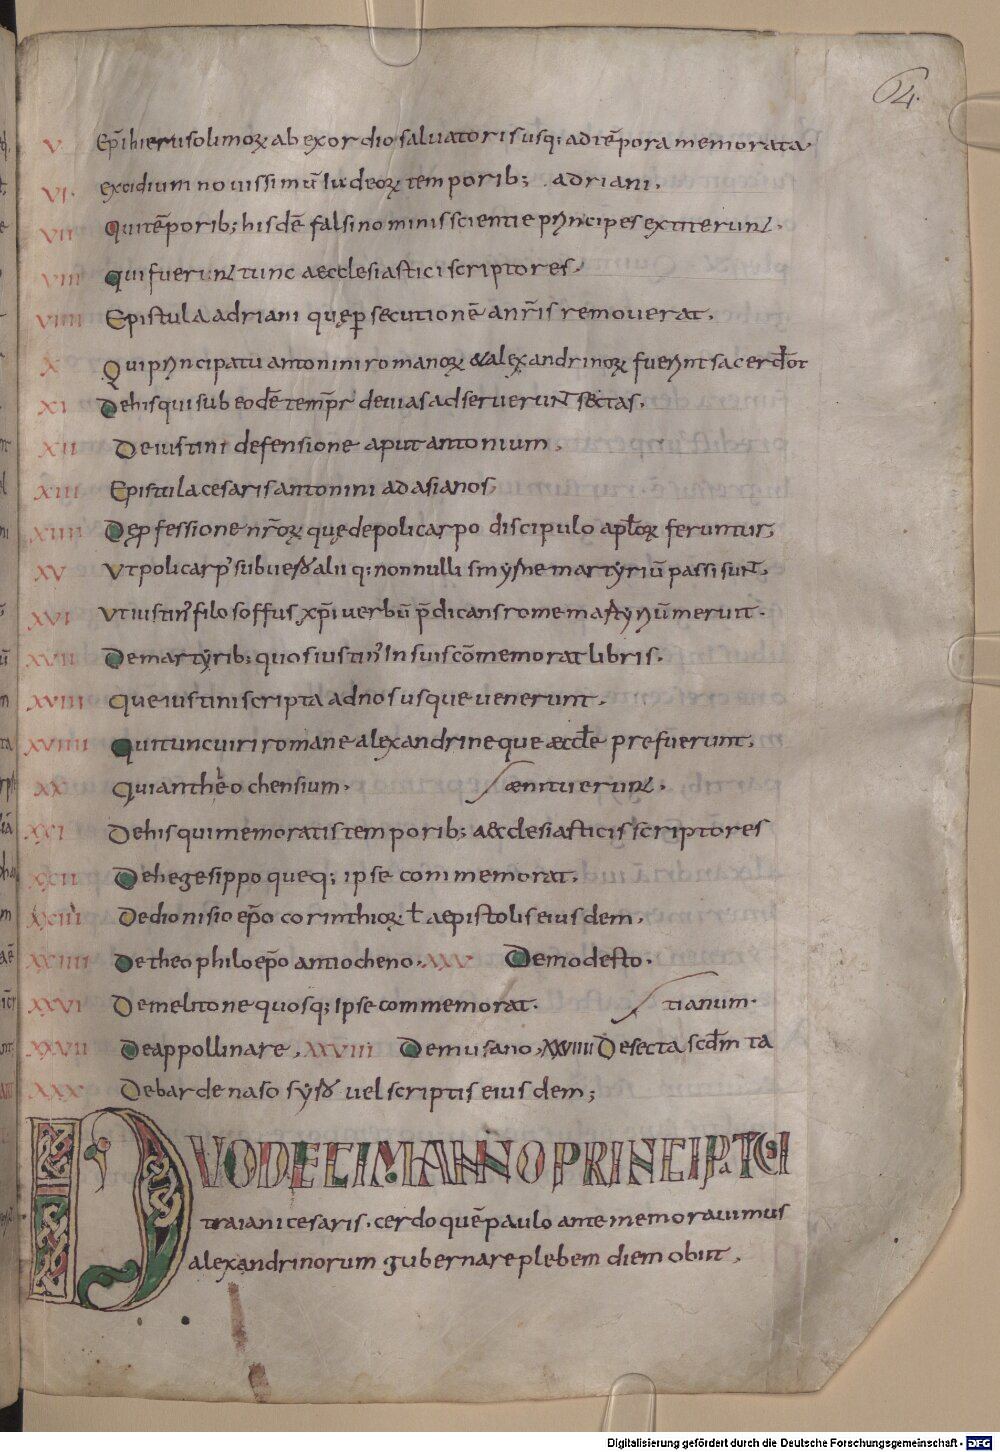 64.
V Ep̄i hierusolimoꝝ ab exordio saluatoris usq; ad tēpora memorata.
VI. excidium novissimū Iudeoꝝ temporib; . adriani.
VII Qui tēporib; hisdē falsi nominis scientie principes extiterunt.
VIII qui fuerunt tunc aecclesiastici scriptores.
VIIII Epistula adriani quę ꝑsecutionē a nr̄is removerat.
X Qui principatu antonini romanoꝝ & alexandrinoꝝ fuerint sacerdot̄
XI De his qui sub eodē tempr̄ devias adseruerunt sectas.
XII De iustini defensione aput antonium.
XIII Epistula cesaris antonini ad asianos.
XIIII De ꝓfessione nr̄oꝝ quę de policarpo discipulo apl̄oꝝ feruntur.
XV Ut policarp' sub uero alii q; nonnulli smyrne martyriū passi sunt.
XVI Ut iustin' filosoffus xp̄i verbū p̄dicans rome martyriū meruit.
XVII De martyrib; quos iustin' In suis cōmemorat libris.
XVIII Que iustini scripta ad nos usque uenerunt.
XVIIII Qui tunc viri romane alexandrine que æccl̄e prefuerunt.
XX Qui antheochensium. ænituerunt.
XXI De his qui memoratis temporib; aecclesiasticis scriptores
XXII De hegesippo queq; ipse commemorat.
XXIII De dionisio ep̄o corinthioꝝ ł aepistolis eiusdem.
XXIIII De theophilo ep̄o antiocheno. XXV De modesto.
XXVI De melitone quosq; ipse commemorat. tianum.
XXVII De appollinare, XXVIII De musano, XXVIIII De secta scd̄m ta
XXX De bardenaso syro vel scriptis eiusdem;
DUODECIM ANNO PRINCIPATUI
traiani cesaris. cerdo quē paulo ante memoravimus
alexandrinorum gubernare plebem diem obiit.
Digitalisierung gefördert durch die Deutsche Forschungsgemeinschaft - DFG